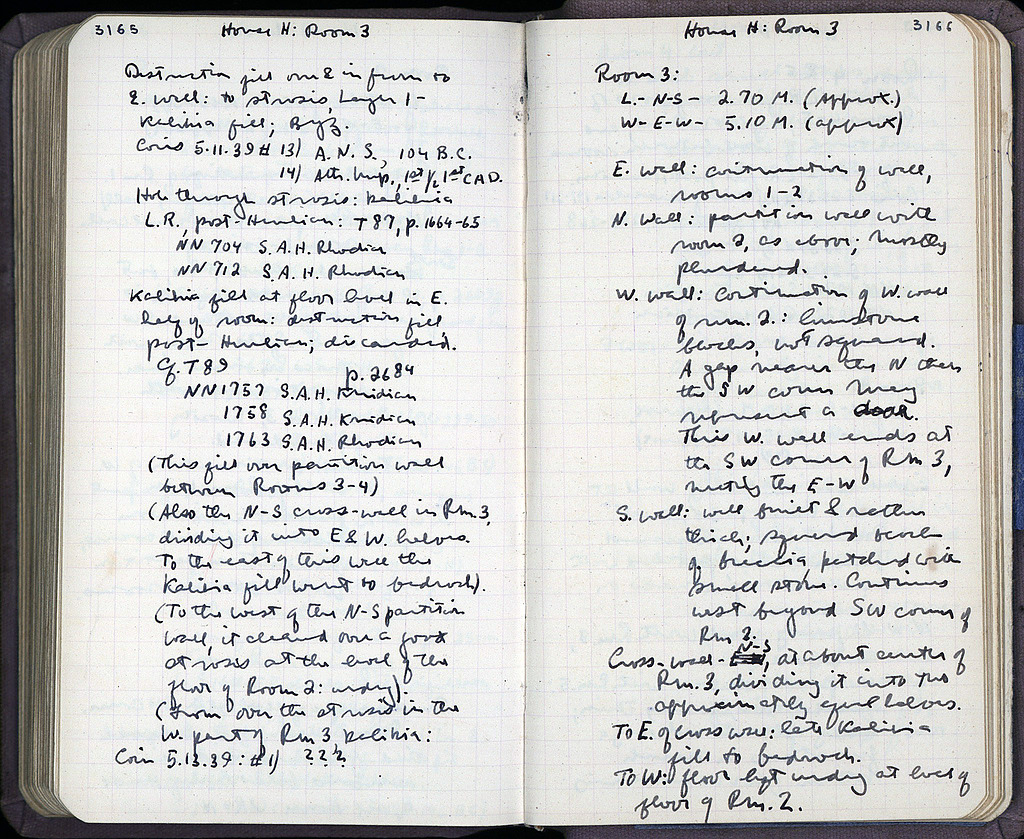 3165
House H: Room 3
Destruction fill over & in from to
E. wall: to strosis, Layer 1 -
Kalibia fill; Byz.
Coins 5.11.39 # 13) A.N.S., 104 B.C.
14) Ath. Imp., 1st/2 1st C A.D.
Hole through strosis: kalibia
L.R., post-Herulian: T 87, p. 1664-65
NN 704 S.A.H. Rhodian
NN 712 S.A.H. Rhodian
Kalibia fill at floor level in E.
half of room: destruction fill
post-Herulian; discarded.
Cf. T 89 p. 2684
NN 1757 S.A.H. Knidian
1758 S.A.H. Knidian
1763 S.A.H. Rhodian
(This fill over partition wall
between Rooms 3-4)
(Also the N-S cross-wall in Rm. 3,
dividing it into E & W. halves.
To the east of this wall the
Kalibia fill went to bedrock).
(To the west of the N-S partition
wall, it cleared over a good
strosis at the level of the
floor of Room 2: undug).
(From over the strosis in the
W. part of Rm 3 kalibia:
Coin 5.13.39: #1) ???
3166
House H: Room 3
Room 3:
L.- N-S - 2.70 M. (Approx.)
W- E-W - 5.10 M. (approx)
E. wall: continuation of wall,
rooms 1-2
N. Wall: partition wall with
room 2, as above; mostly
plundered.
W. wall: Continuation of W. wall
of rm. 2.: limestone
blocks, not squared.
A gap nearer the N than
the SW corner may
represent a door.
This W. wall ends at
the SW corner of Rm 3,
meeting the E-W
S. wall: well built & rather
thick; squared block
of breccia patched with
small stone. Continues
west beyond SW corner of
Rm 2.
Cross-wall - N-S, at about center of
Rm. 3, dividing it into two
approximately equal halves.
To E. of cross wall: late Kalibia
fill to bedrock.
To W: floor left undug at level of
floor of Rm. 2.